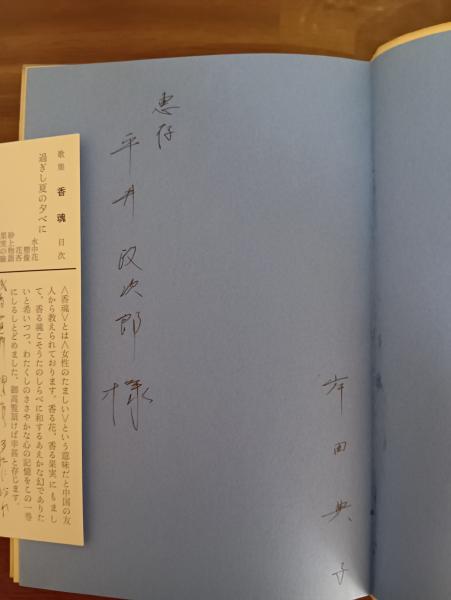 恵存
平井政次郎
様
岸田典子
歌集 香魂 目次
過ぎし夏の夕べに
水中花
塑像
花杏
砂上物語
果実の籠
〈香魂〉とは〈女性のたましい〉という意味だと中国の友
人から教えられております。香る花、香る果実にもまし
て、香る魂こそうたのしらべに和するあえかな幻でありた
いと希いつつ、わたくしのささやかな心の記憶をこの一巻
にしるしとどめました。御高覧頂けば幸甚と存じます。